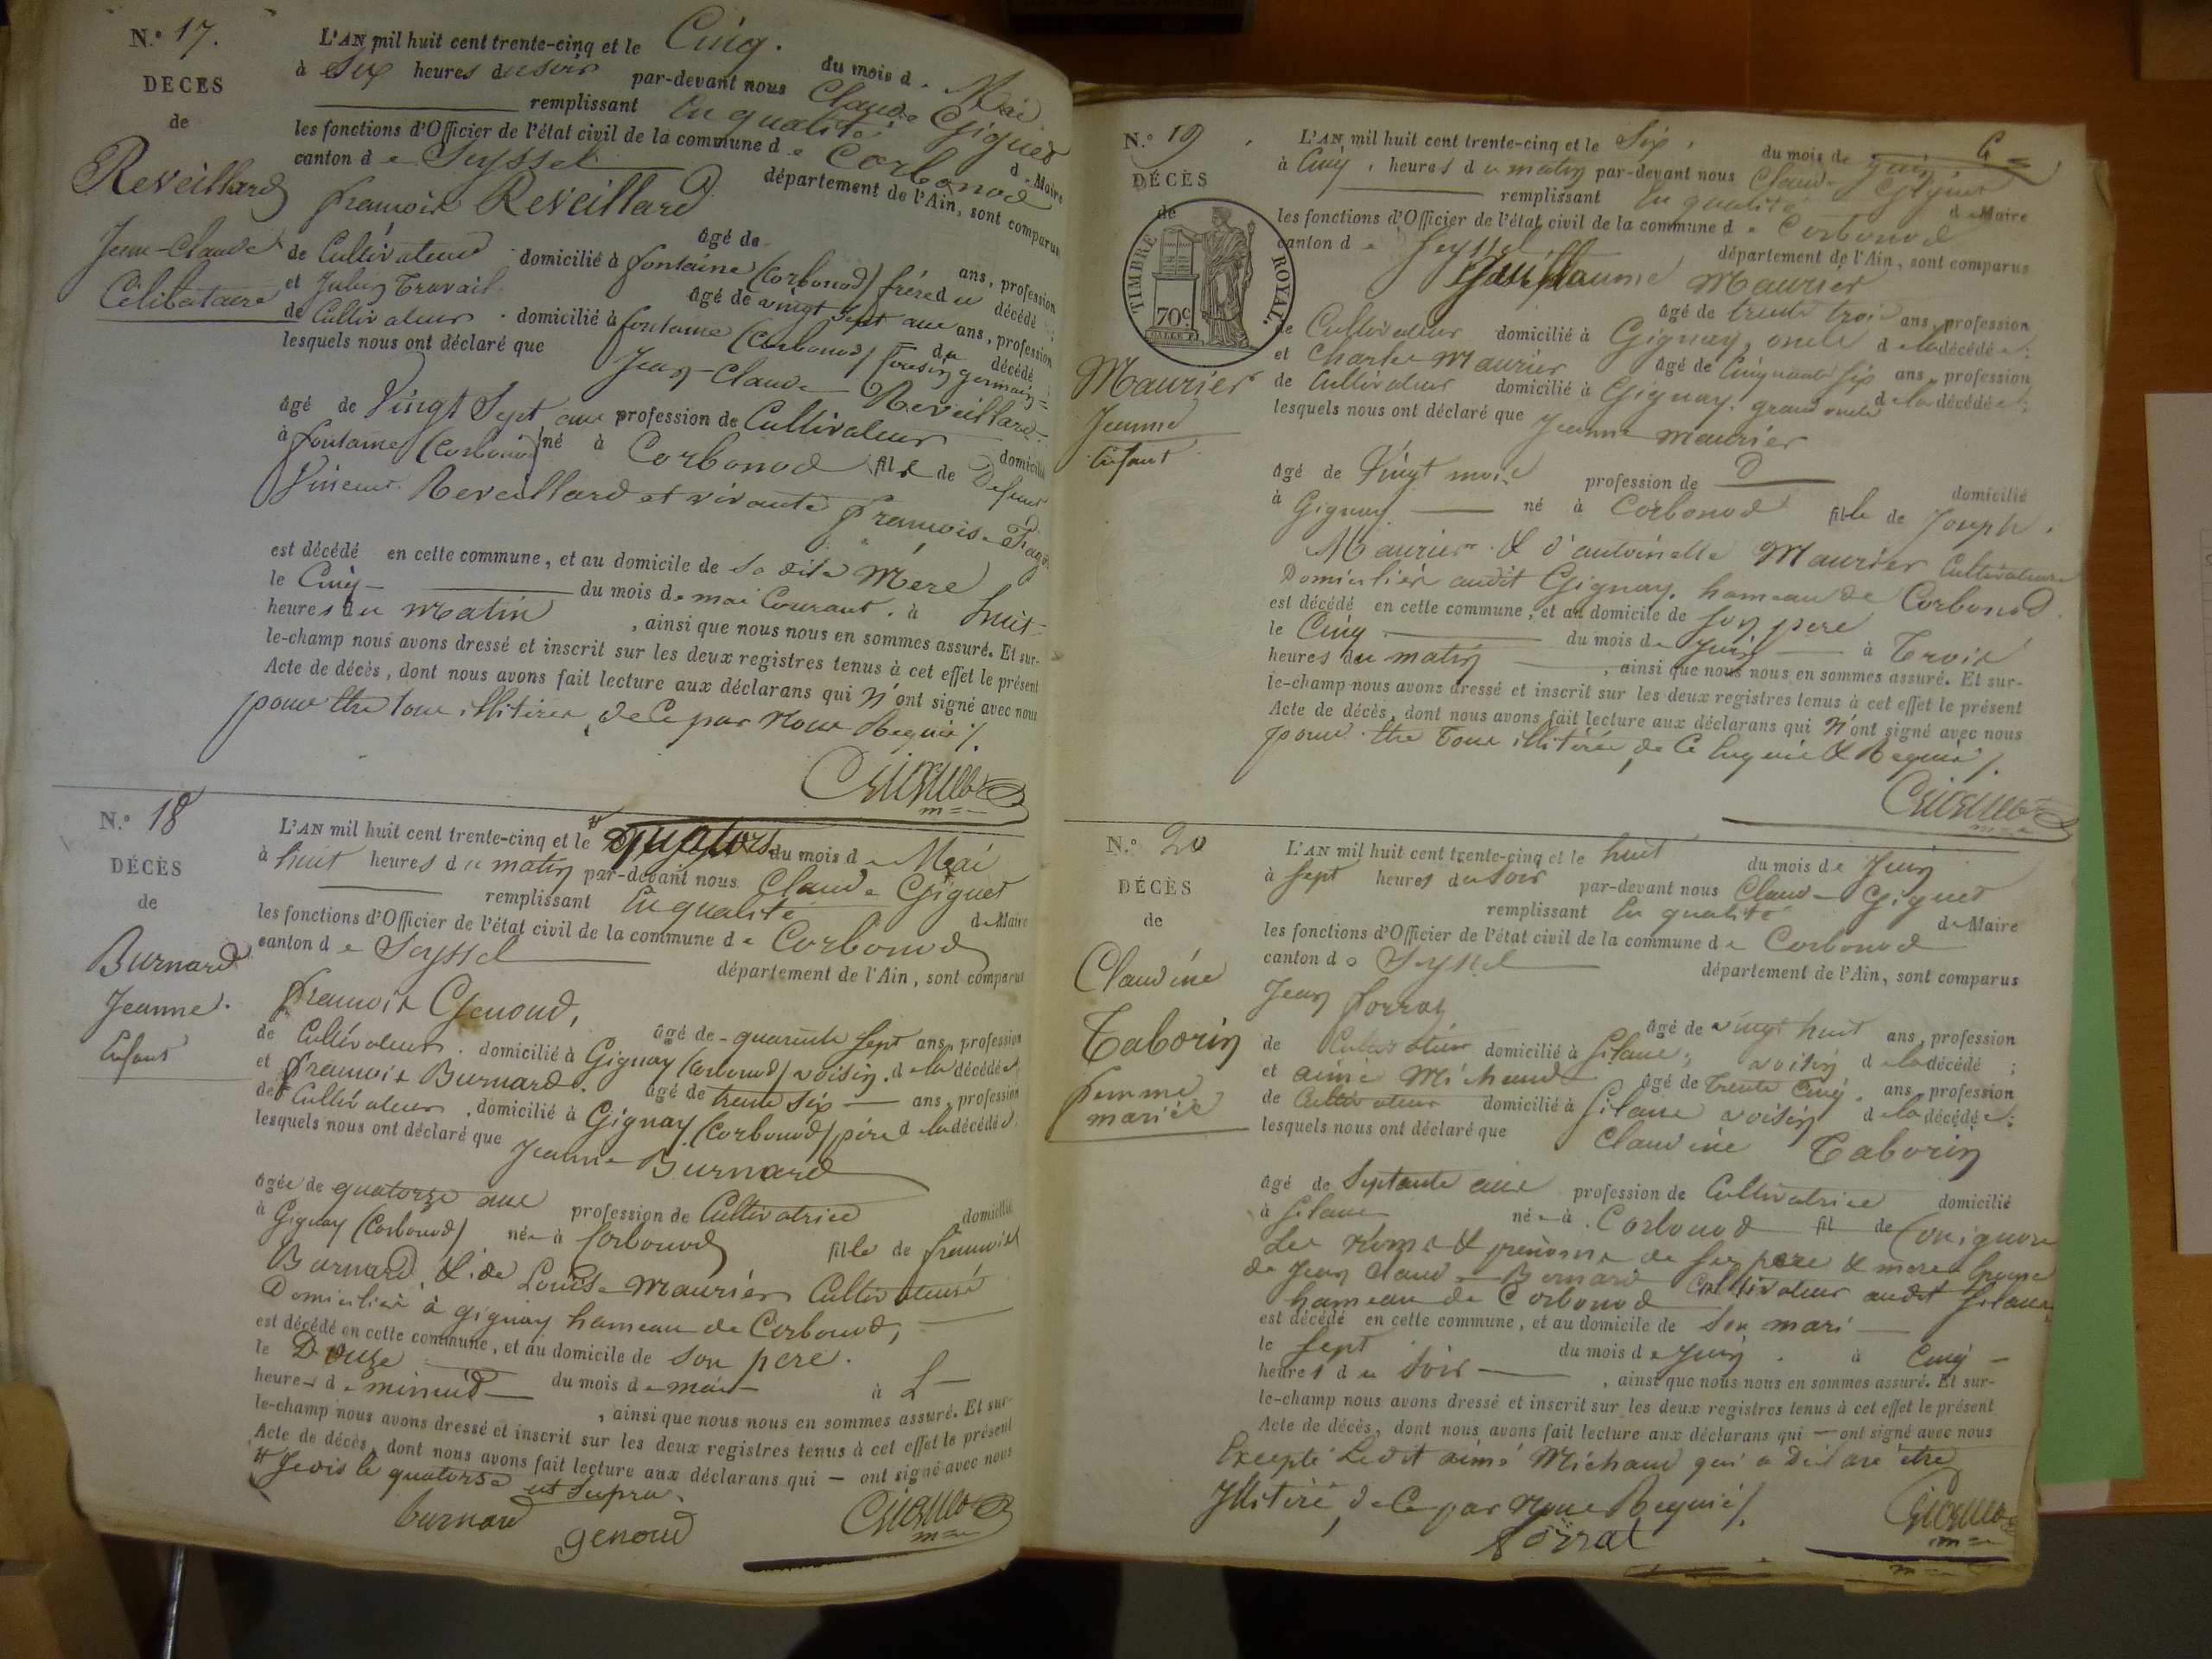 N.° 17.
DECES
de
Reveillard
Jean-Claude
Célibataire
L'AN mil huit cent trente-cinq et le Cinq. du mois de Mai
à Six heures du soir par-devant nous Claude Giguet
remplissant en qualité de Maire
les fonctions d'Officier de l'état civil de la commune de Corbonod
canton de Seyssel département de l'Ain, sont comparus
francois Reveillard
âgé de ans, profession
de Cultivateur domicilié à fontaine (Corbonod) frère du décédé ;
et Julien Travail âgé de vingt sept ans ans, profession
de Cultivateur domicilié à fontaine (Corbonod) Cousin germain du décédé
lesquels nous ont déclaré que Jean-Claude Reveillard
âgé de Vingt Sept ans profession de Cultivateur domicilié
à fontaine (Corbonod) né à Corbonod fils de Defunt
Vincent Reveillard et vivante francoise
est décédé en cette commune, et au domicile de sa dite Mere
le Cinq du mois de mai Courant. à huit
heures du matin , ainsi que nous nous en sommes assuré. Et sur-
le-champ nous avons dressé et inscrit sur les deux registres tenus à cet effet le présent
Acte de décès, dont nous avons fait lecture aux déclarans qui N'ont signé avec nous
pour être tous illitéres, de Ce par Nous Requis /.
N.° 18
DÉCÈS
de
Burnard
Jeanne.
Enfant
L'AN mil huit cent trente-cinq et le quatorse du mois de Mai
à huit heures du matin par-devant nous Claude Giguet
remplissant en qualité de Maire
les fonctions d'Officier de l'état civil de la commune de Corbonod
canton de Seyssel département de l'Ain, sont comparus
francois Genoud,
âgé de quarente sept ans, profession
de Cultivateur. domicilié à Gignay (Corbonod) voisin. de la décédée
et francois Burnard. âgé de trente six ans, profession
de Cultivateur, domicilié à Gignay. (Corbonod) père de la décédée
lesquels nous ont déclaré que Jeanne Burnard
âgée de quatorze ans profession de Cultivatrice domicilié
à Gignay (Corbonod) née à Corbonod fille de francois
Burnard, & de Louise Maurier Cultivateurs
Domiciliés à gignay hameau de Corbonod,
est décédé en cette commune, et au domicile de son pere.
le Douze du mois de mai à L
heures de minuit , ainsi que nous nous en sommes assuré. Et sur-
le-champ nous avons dressé et inscrit sur les deux registres tenus à cet effet le présent
Acte de décès, dont nous avons fait lecture aux déclarans qui — ont signé avec nous
# Jevis le quatorse ut supra.
burnard
genoud
N.° 19
DÉCÈS
de
TIMBRE ROYAL.
70c
Maurier
Jeanne
Enfant
L'AN mil huit cent trente-cinq et le Six, du mois de juin
à Cinq heures du matin par-devant nous Claude Giguet
remplissant en qualité de Maire
les fonctions d'Officier de l'état civil de la commune de Corbonod
canton de Seyssel département de l'Ain, sont comparus
Guillaume Maurier
âgé de trente trois ans, profession
de Cultivateur domicilié à Gignay, oncle de la décédée ;
et Charles Maurier âgé de Cinquante Six ans, profession
de Cultivateur domicilié à Gignay. grand oncle de la décédée ;
lesquels nous ont déclaré que Jeanne Maurier
âgé de Vingt mois profession de domicilié
à Gignay né à Corbonod fille de Joseph
Maurier & d'antoinette Maurier Cultivateurs
Domiciliés audit Gignay. hameau de Corbonod.
est décédé en cette commune, et au domicile de son pere
le Cinq du mois de Juin à Trois
heures du matin , ainsi que nous nous en sommes assuré. Et sur-
le-champ nous avons dressé et inscrit sur les deux registres tenus à cet effet le présent
Acte de décès, dont nous avons fait lecture aux déclarans qui N'ont signé avec nous
pour être Tous illitérés, de Ce Enquis & Requis /.
N.° 20
DÉCÈS
de
Claudine
Taborin
femme
mariée
L'AN mil huit cent trente-cinq et le huit du mois de Juin
à Sept heures du Soir par-devant nous Claude Giguet
remplissant En qualité de Maire
les fonctions d'Officier de l'état civil de la commune de Corbonod
canton de Seyssel département de l'Ain, sont comparus
Jean forrat
âgé de vingt huit ans, profession
de Cultivateur domicilié à Silans, voisin de la décédé ;
et aimé Michaud âgé de Trente Cinq. ans, profession
de Cultivateur domicilié à Silans voisin de la décédée ;
lesquels nous ont déclaré que Claudine Taborin
âgé de Septante ans profession de Cultivatrice domicilié
à Silans née à Corbonod fil de
Les Noms & prénoms de Ses pere & mere Epouse
de Jean Claude Burnard Cultivateur audit Silans
hameau de Corbonod
est décédé en cette commune, et au domicile de Son mari
le Sept du mois de Juin. à Cinq
heures du Soir , ainsi que nous nous en sommes assuré. Et sur-
le-champ nous avons dressé et inscrit sur les deux registres tenus à cet effet le présent
Acte de décès, dont nous avons fait lecture aux déclarans qui — ont signé avec nous
Excepté Ledit aimé Michaud qui a Déclaré être
Illitéré, de Ce par Nous Requis /.
forrat